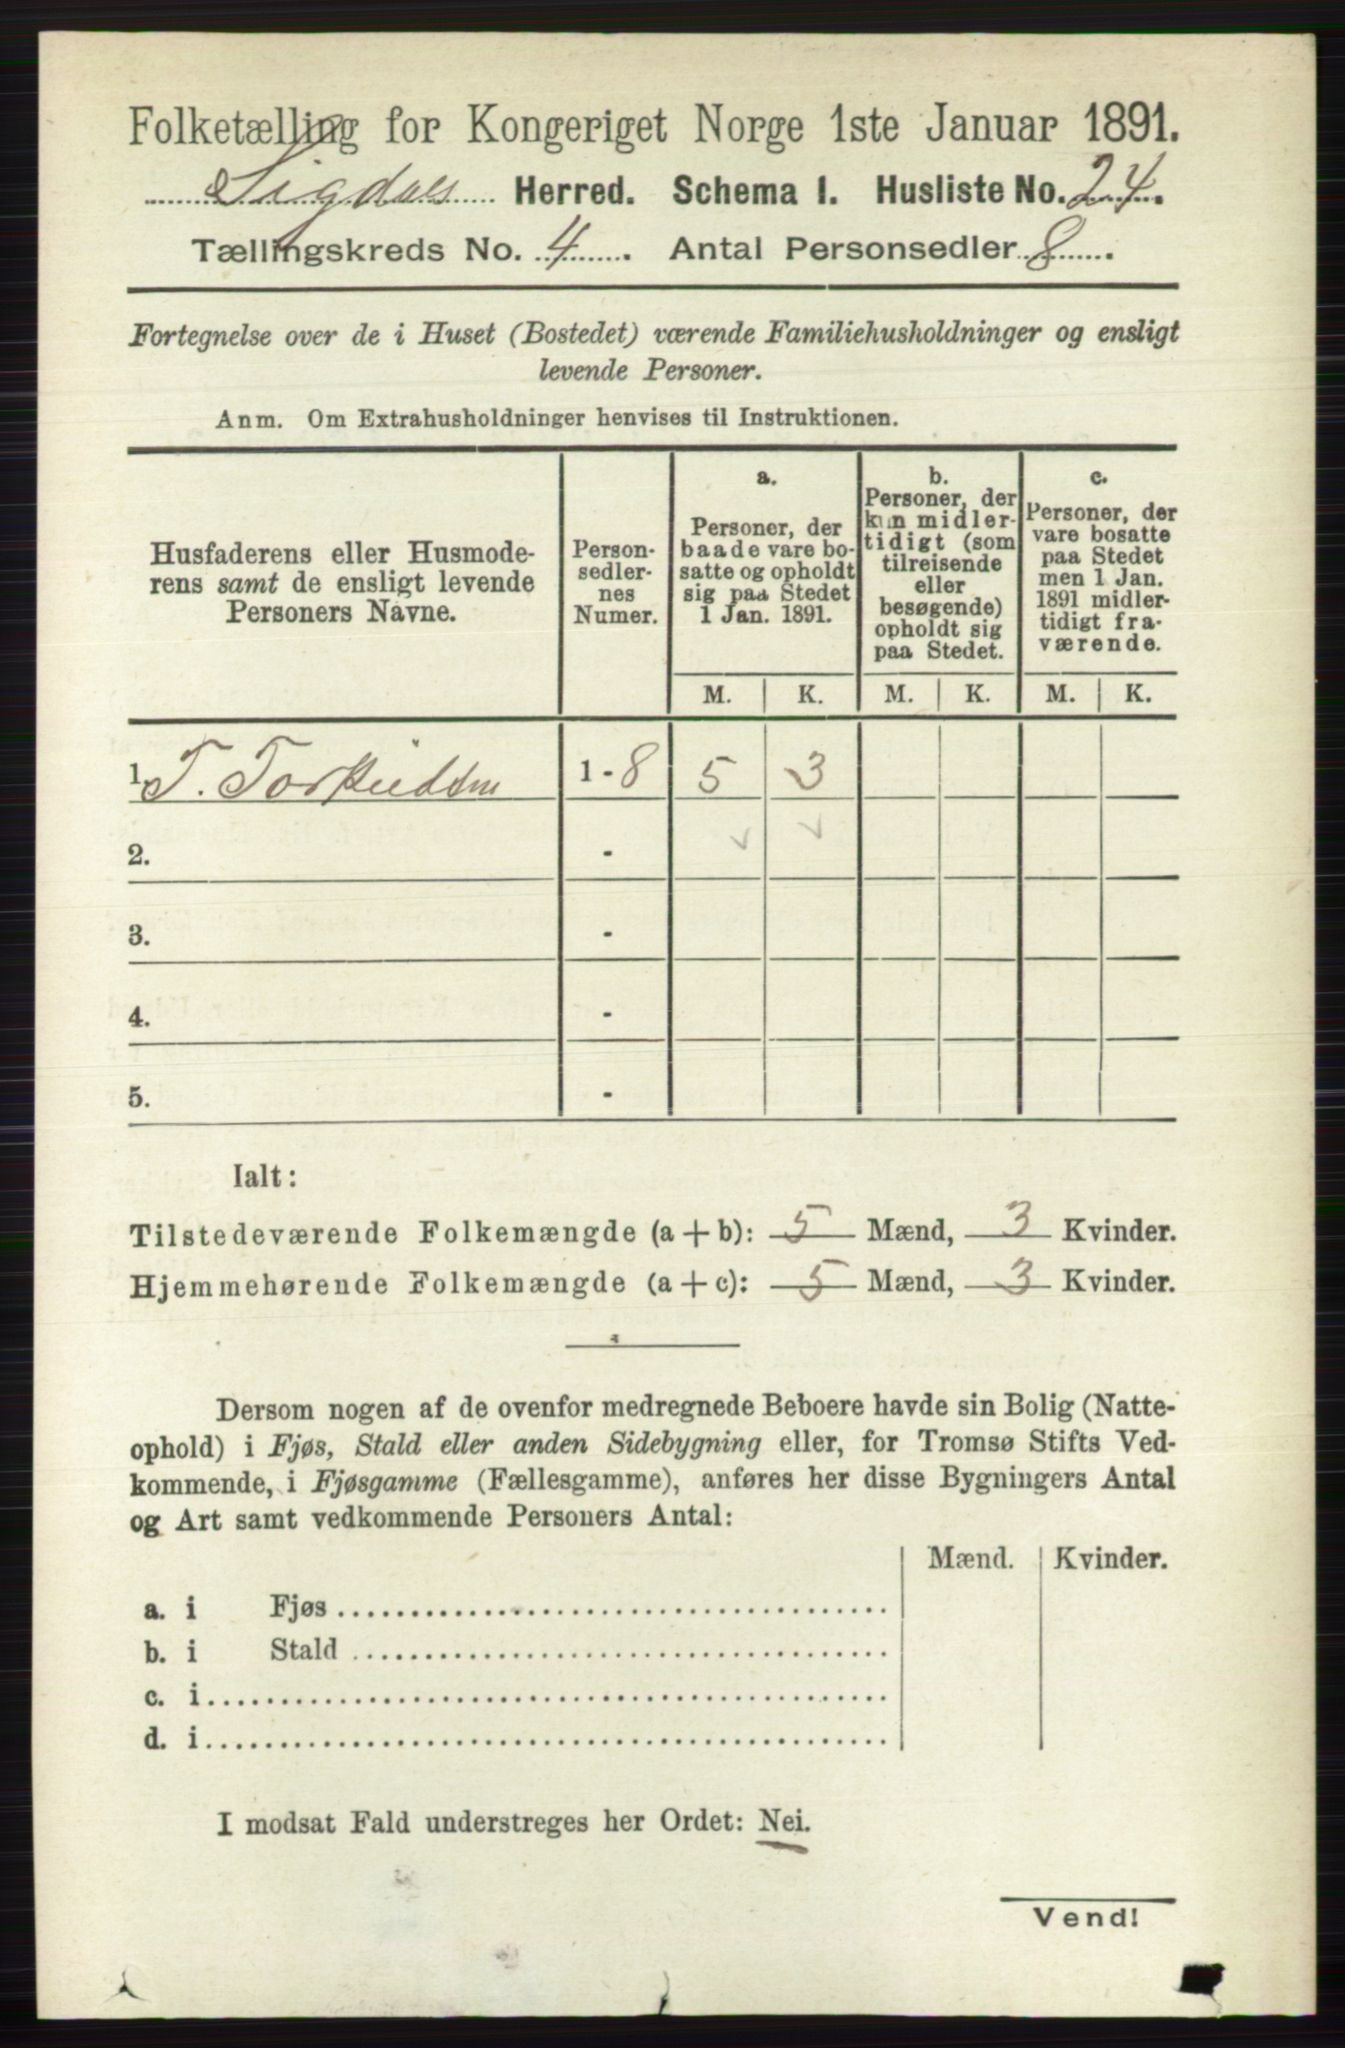 Folketælling for Kongeriget Norge 1ste Januar 1891.
Sigdals Herred. Schema I. Husliste No. 24.
Tællingskreds No. 4. Antal Personsedler 8.
Fortegnelse over de i Huset (Bostedet) værende Familiehusholdninger og ensligt
levende Personer.
Anm. Om Extrahusholdninger henvises til Instruktionen.
Husfaderens eller Husmode-
rens samt de ensligt levende
Personers Navne.
Person-
sedler-
nes
Numer.
a.
Personer, der
baade vare bo-
satte og opholdt
sig paa Stedet
1 Jan. 1891.
b.
Personer, der
kun midler-
tidigt (som
tilreisende
eller
besøgende)
opholdt sig
paa Stedet.
c.
Personer, der
vare bosatte
paa Stedet
men 1 Jan.
1891 midler-
tidigt fra-
værende.
M. K. M. K. M. K.
1. T. 1 - 8 5 3
2. -
3. -
4. -
5. -
Ialt:
Tilstedeværende Folkemængde (a + b): 5 Mænd, 3 Kvinder.
Hjemmehørende Folkemængde (a + c): 5 Mænd, 3 Kvinder.
Dersom nogen af de ovenfor medregnede Beboere havde sin Bolig (Natte-
ophold) i Fjøs, Stald eller anden Sidebygning eller, for Tromsø Stifts Ved-
kommende, i Fjøsgamme (Fællesgamme), anføres her disse Bygningers Antal
og Art samt vedkommende Personers Antal:
Mænd. Kvinder.
a. i Fjøs
b. i Stald
c. i
d. i
I modsat Fald understreges her Ordet: Nei.
Vend!